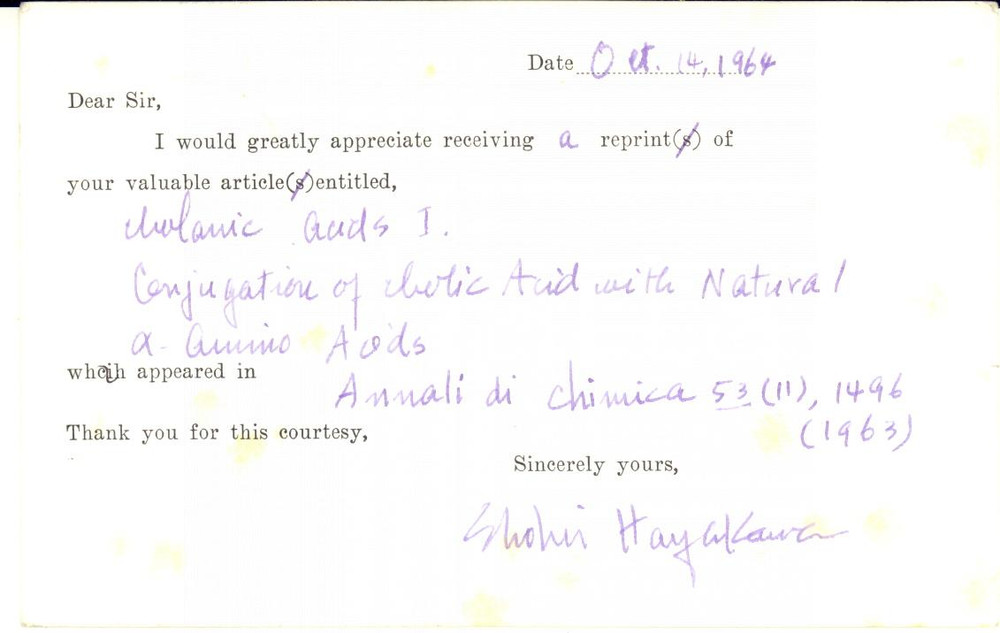 Date Oct. 14, 1964
Dear Sir,
I would greatly appreciate receiving a reprint(s) of
your valuable article(s)entitled,
cholanic acids I.
Conjugation of cholic Acid with Natural
α-Amino Acids
which appeared in
Annali di chimica 53 (11), 1496
(1963)
Thank you for this courtesy,
Sincerely yours,
Hayakawa